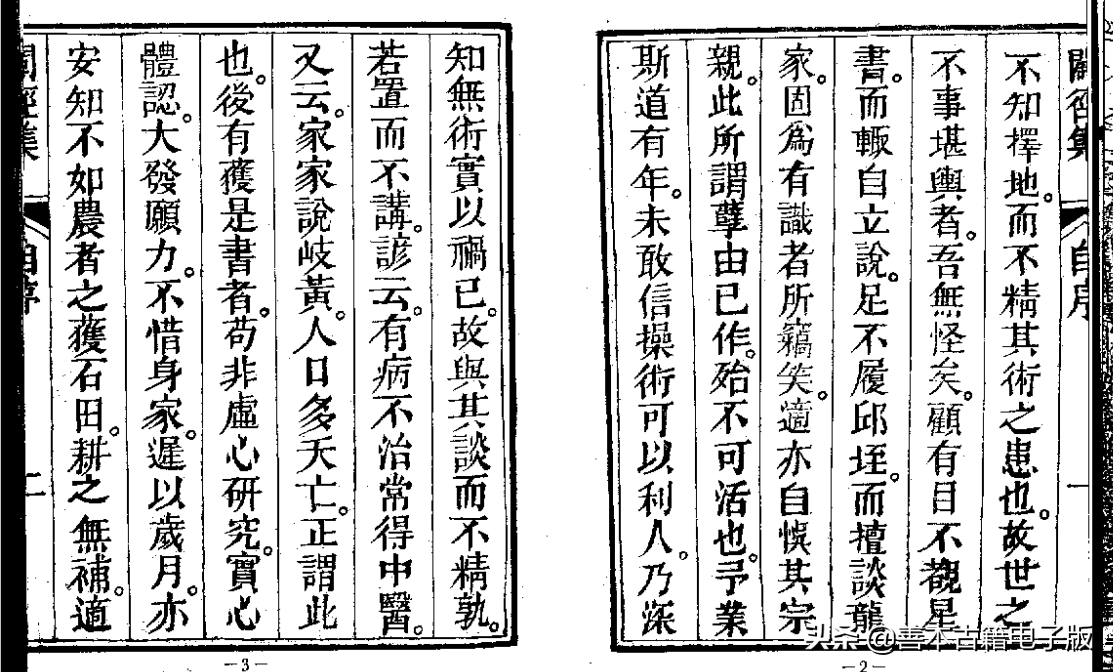 自序
一
不知擇地。而不精其術之患也。故世之
不事堪輿者。吾無怪矣。顧有目不覩星
書。而輒自立說。足不履邱垤。而擅談龍
家。固為有識者所竊笑。適亦自悞其宗
親。此所謂孽由已作。殆不可活也。予業
斯道有年。未敢信操術可以利人。乃深
—2—
知無術實以禍已。故與其談而不精。孰
若置而不講。諺云。有病不治常得中醫。
又云。家家說岐黃。人口多夭亡。正謂此
也。後有獲是書者。苟非虛心研究。實心
體認。大發願力。不惜身家。遲以歲月。亦
安知不如農者之獲石田。耕之無補。適
二
—3—
头条@善本古籍电子版